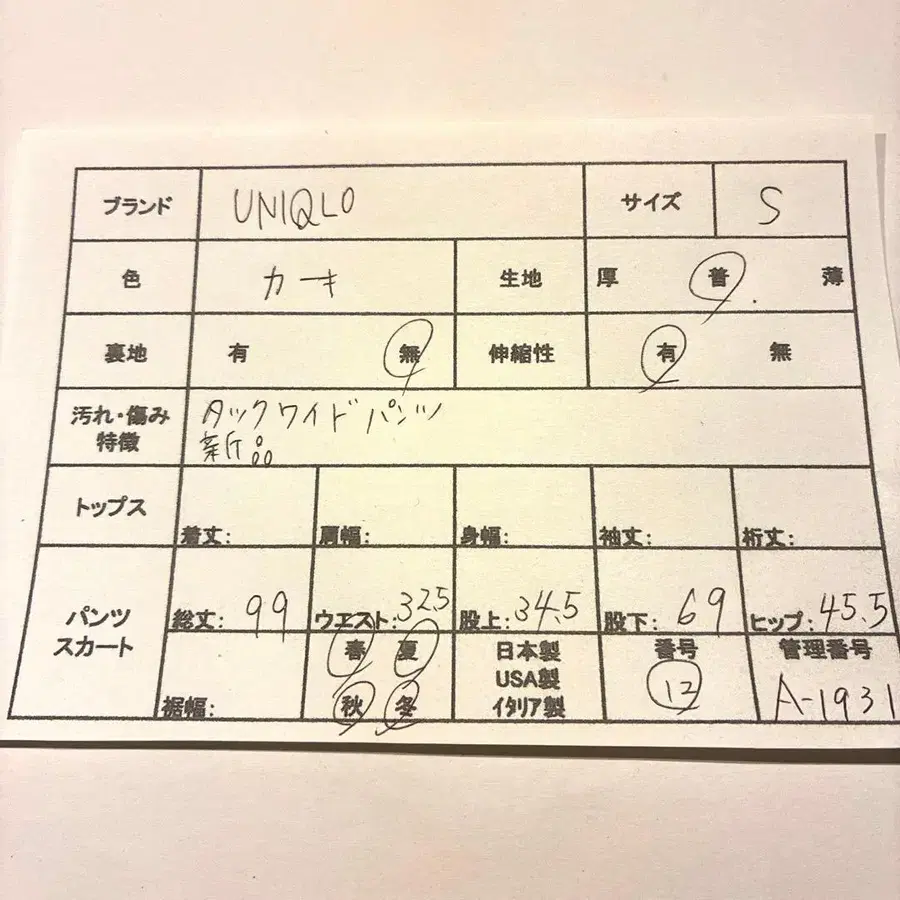 ブランド UNIQLO サイズ S
色 カーキ 生地 厚 普 薄
裏地 有 無 伸縮性 有 無
汚れ・傷み
特徴
タックワイドパンツ
新品
トップス 着丈: 肩幅: 身幅: 袖丈: 裄丈:
パンツ
スカート
総丈: 99 ウエスト: 32.5 股上: 34.5 股下: 69 ヒップ: 45.5
裾幅:
春 夏
秋 冬
日本製
USA製
イタリア製
番号
12
管理番号
A-1931